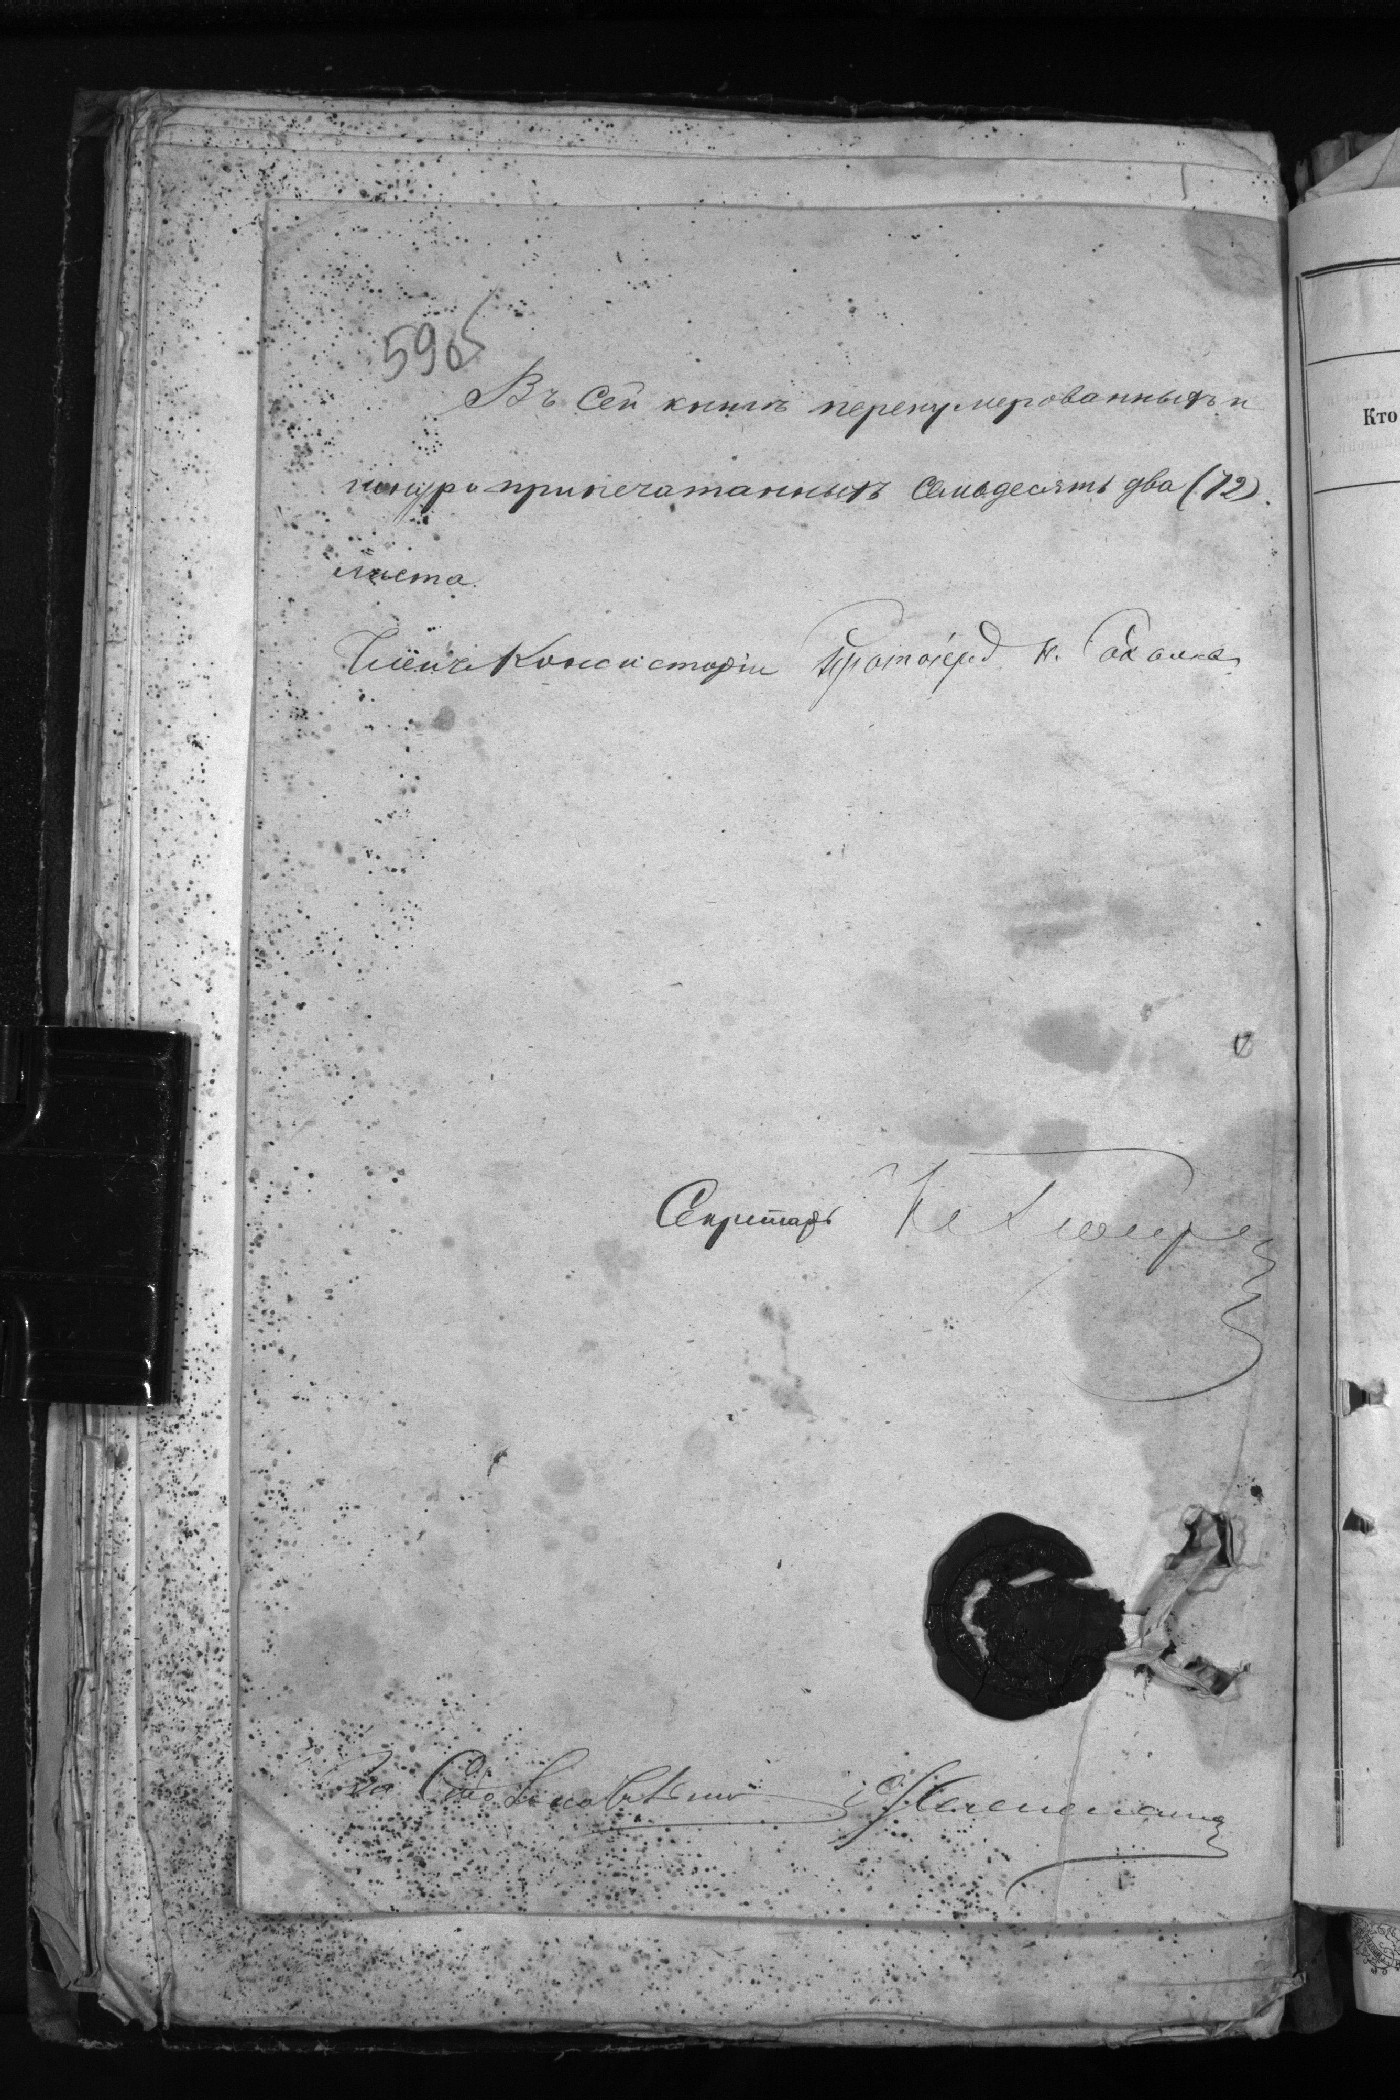 5905
Въ сей книгѣ перенумерованныхъ и
шнуроприпечатанныхъ семьдесятъ два (72)
листа.
Членъ Консисторіи Протоіерей Н.
Секретарь
За Столоначальника
Кто